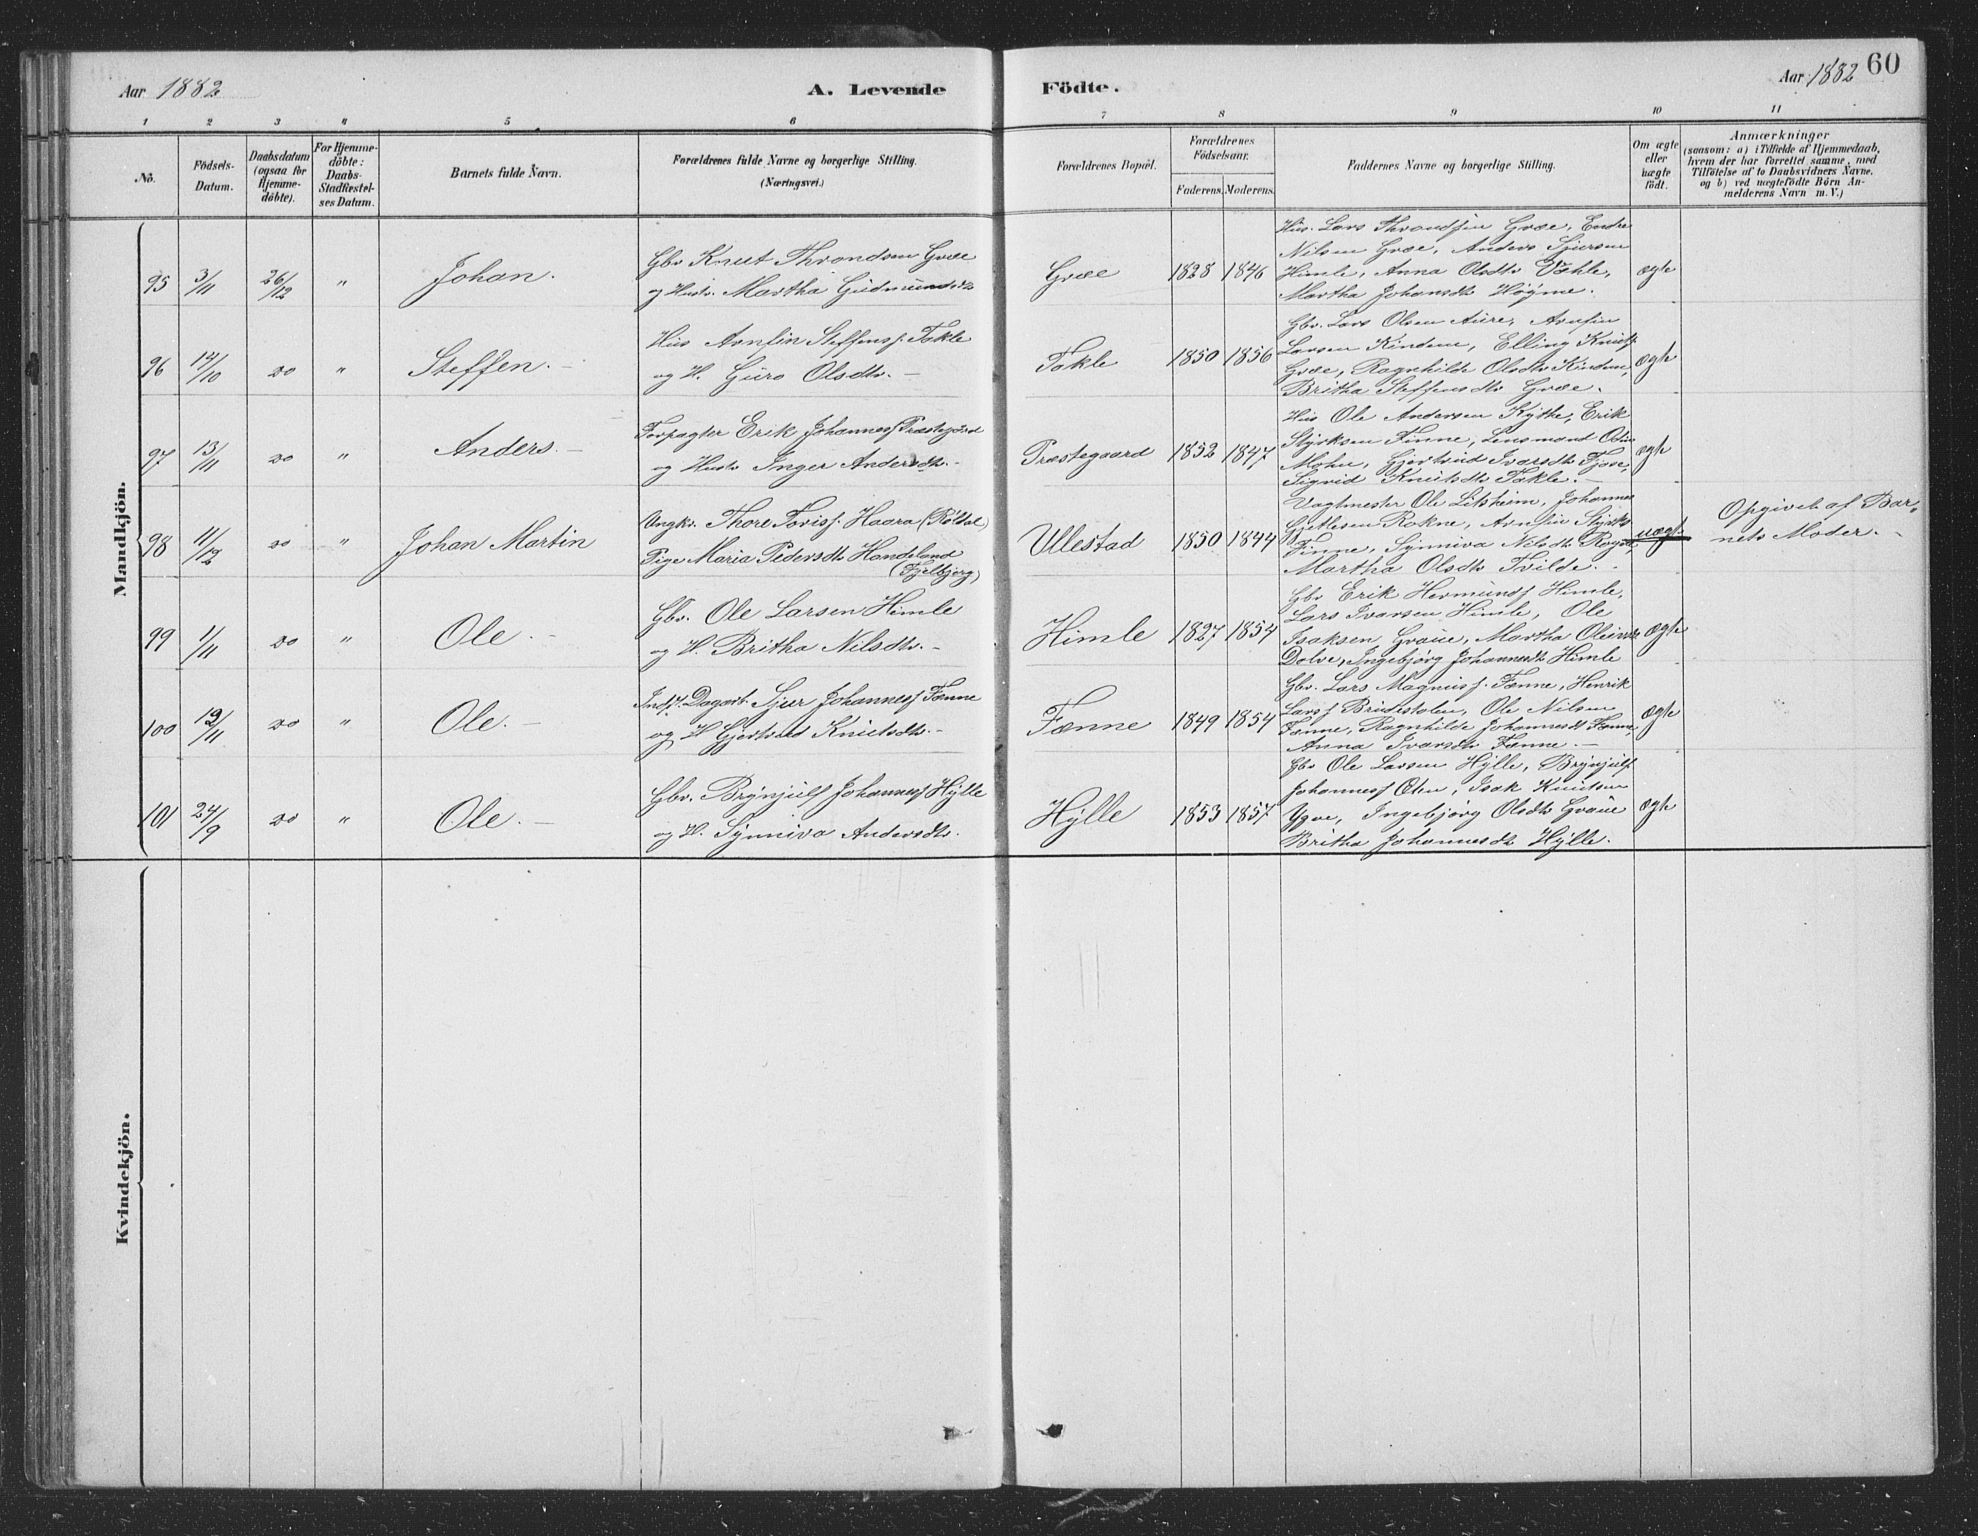 Aar 1882
A. Levende
Födte.
Aar 1882
60
1 2 3 4 5 6 7 8 9 10 11
No.
Födsels-
Datum.
Daabsdatum
(ogsaa for
Hjemme-
döbte).
For Hjemme-
döbte:
Daabs-
Stadfæstel-
ses Datum.
Barnets fulde Navn.
Forældrenes fulde Navne og borgerlige Stilling.
(Næringsvei.)
Forældrenes Bopæl.
Forældrenes
Födselsaar.
Faderens. Moderens.
Faddernes Navne og borgerlige Stilling.
Om ægte
eller
uægte
födt.
Anmærkninger
(saasom: a) i Tilfælde af Hjemmedaab,
hvem der har forrettet samme, med
Tilföielse af to Daabsvidners Navne,
og b) ved uægtefödte Börn An-
melderens Navn m. V.)
Mandkjön.
95
3/11
26/12
"
Johan.
Gbr Knut Throndsen Græe
og Hust. Martha Gudmundsdtr
Græe
1828 1846
Hus. Lars Throndsen Græe, Endre
Nilsen Græe, Anders Sjursen
Himle, Anna Olsdtr Væhle,
Martha Johansdtr Høyme.
ægte
96
14/10
do
"
Steffen. -
Hus Arnfin Steffens. Takle
og H. Guro Olsdtr. -
Takle
1850 1856
Gbr. Lars Olsen Aure, Arnfin
Larsen Kindem, Elling Knuts.
Græe, Ragnhilde Olsdtr Kindem,
Britha Steffensdtr Græe.
ægte
97
13/11
do
"
Anders. -
Forpagter Erik Johanness. Præstegård
og Hust Inger Andersdtr. -
Præstegaard
1852 1847
Hus Ole Andersen Kythe, Erik
Styrksen Finne, Lensmand Odin
Mohn, Gjertrud Ivarsdtr Fjose,
Sigrid Knutsdtr Takle. -
ægte
98
11/12
do
"
Johan Martin
Ungkr. Thore Toriss. Haara (Røldal)
Pige Maria Pedersdtr Handeland
(Fjelbjerg)
Ullestad
1850 1844
Vagtmester Ole Litsheim, Johannes
Gjetlesen Rokne, Arnfin Styrks.
Finne, Synniva Nilsdtr
Martha Olsdtr Tvilde. -
uægte
Opgivet af Bar-
nets Moder. -
99
1/11
do
"
Ole. -
Gbr. Ole Larsen Himle
og H. Britha Nilsdtr. -
Himle
1827 1854
Gbr Erik Hermunds. Himle,
Lars Ivarsen Himle, Ole
Isaksen Graue, Martha
Dolve, Ingebjørg Johannesdtr Himle
ægte
100
19/11
do
"
Ole. -
Inds. Dagarb. Sjur Johanness. Fenne
og H Gjertrud Knutsdtr. -
Fenne
1849 1854
Gbr. Lars Magnuss. Fenne, Henrik
Larss. Brudstolen, Ole Nilsen
Fenne, Ragnhilde Johannesdtr Fenne,
Anna Ivarsdtr Fenne. -
ægte
101
24/9
do
"
Ole. -
Gbr. Brynjulf Johanness. Hylle
og H. Synniva Andersdtr.
Hylle
1853 1857
Gbr Ole Larsen Hylle, Brynjulf
Johanness. Isak Knutsen
Ygre, Ingebjørg Olsdtr Graue
Britha Johannesdtr Hylle.
ægte
Kvindekjön.